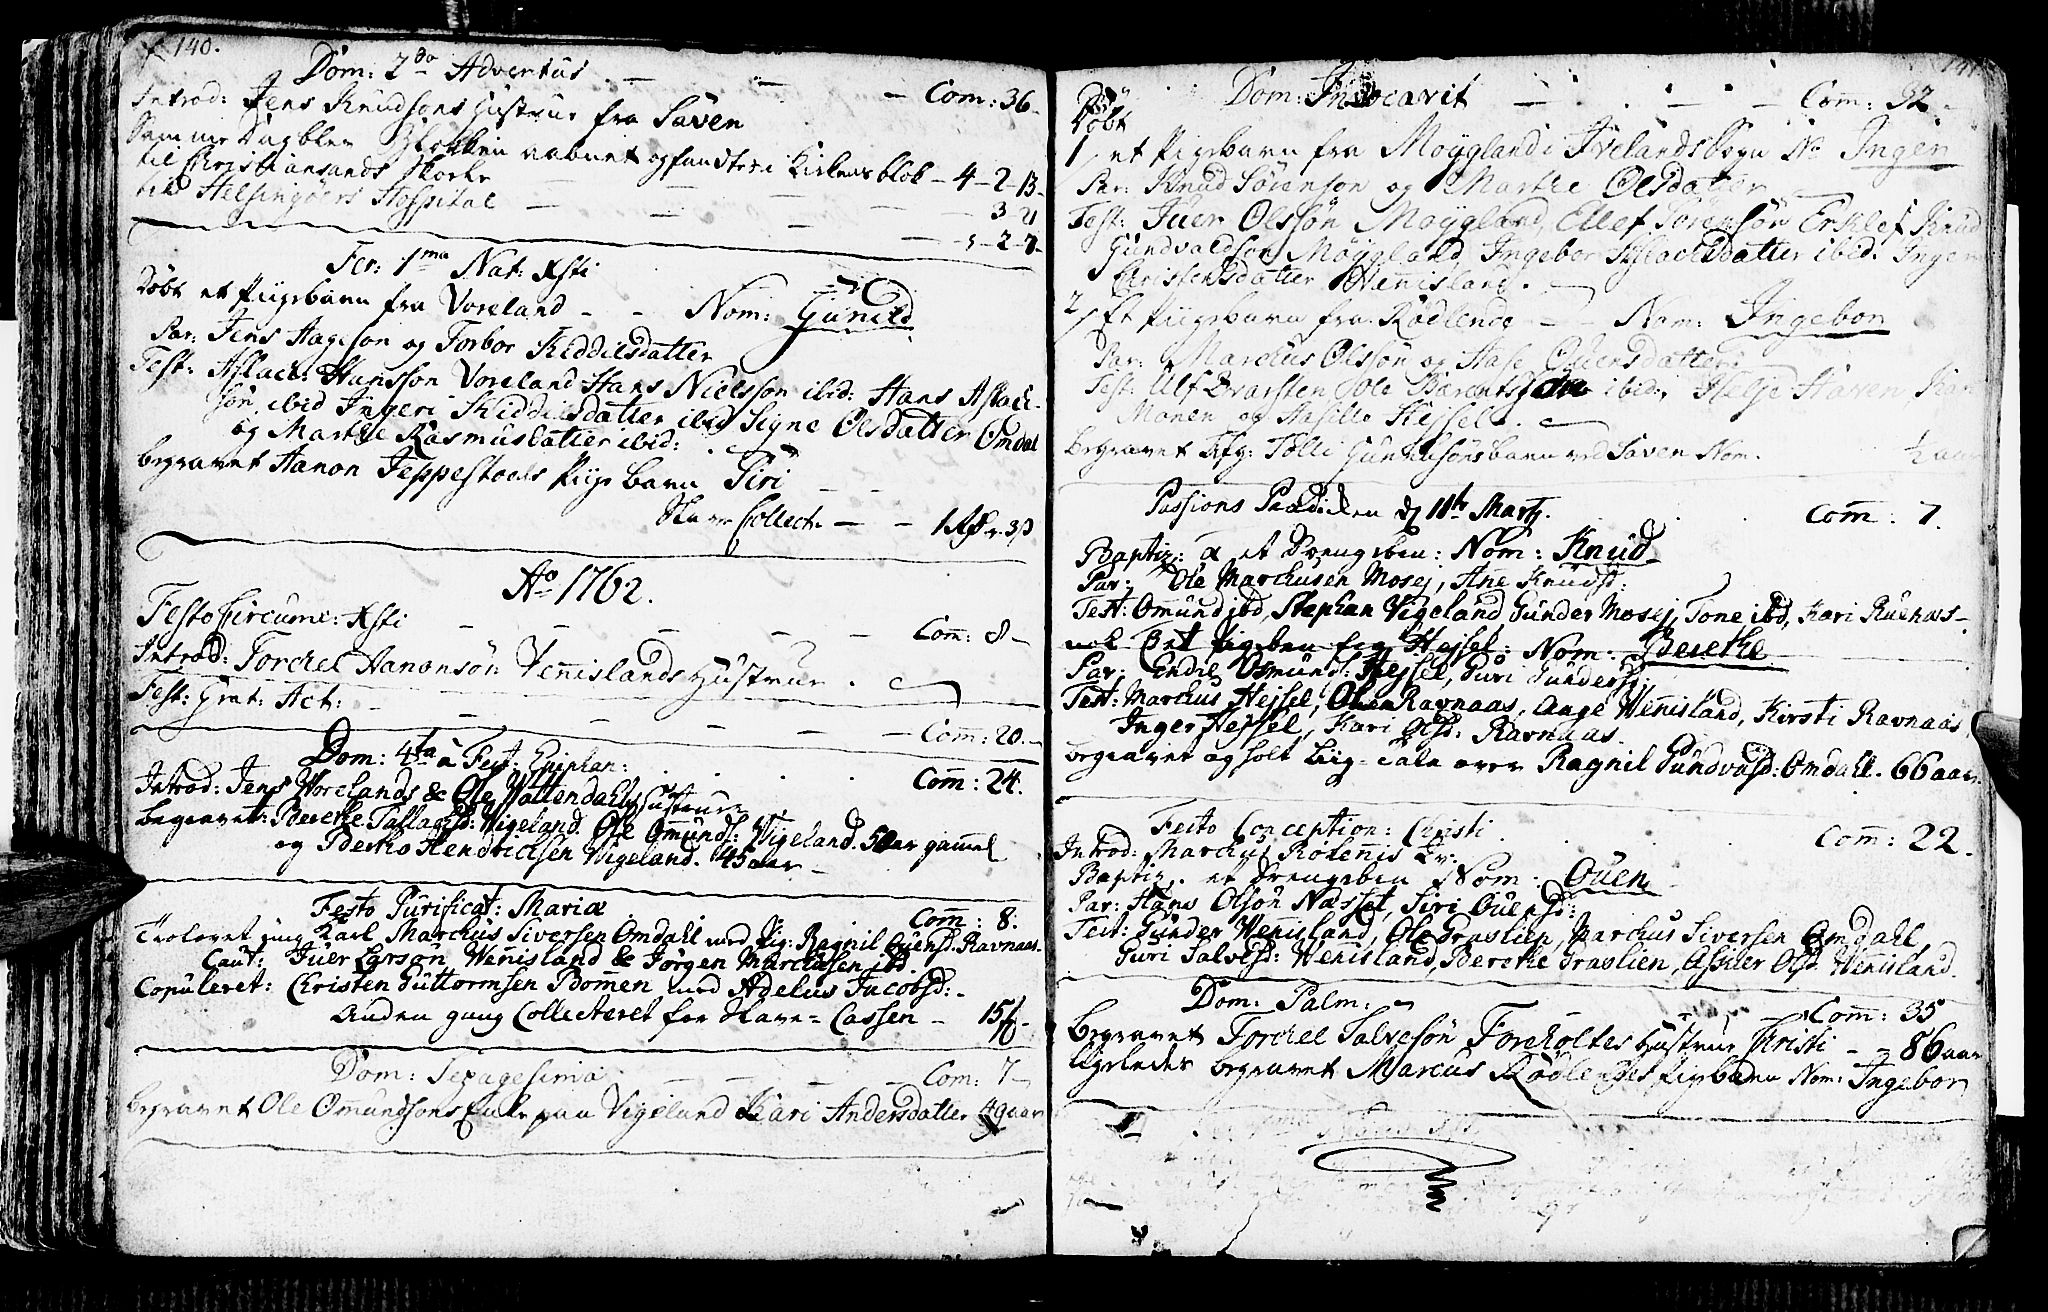 f 140.
Dom: 2da Adventus. — — — Com: 36
Introd: Jens Knudsons Hustrue fra Saven
Samme Dag blev Blokken aabnet og fandtes i Kirkens blok – 4 – 2 – 13
til Christiansands Skole — — — 3 – 21
til Helsingöers Hospital — — — 5 – 2 – 7
Fer: 1ma Nat: Xsti
Döbt et Pigebarn fra Voreland – – Nom: Gunild
Par: Jens Aageson og Torbor Kiddilsdatter
Test: Aslack Hansson Voreland Hans Nielsson ibid: Hans Aslack-
sön ibid Ingeri Kiddilsdatter ibid Signe Olsdatter Omdal
og Marthe Rasmusdatter ibid:
begravet Aanon Jeppestads Pige barn Siri — —
Collect — — 1 3 ß
Ao 1762.
Festo Circumc: Xsti — — — — — Com: 8 –
Introd: Torchel Aanonsön Vennislands Hustrue .
Fest: Act: — — — — Com: 20. –
Dom: 4ta a Fest: Epiphan: . . . Com: 24.
Introd: Jens Worelands & Ole Wattendahls Hustruer
begravet: Berethe Tallachsd: Wigeland. Ole Omunds: Wigeland. 50 aar gammel
og Hendricksen Wigeland. 45 aar –
Festo Purificat: Mariæ Com: 8:
Trolovet ung Karl Marchus Siversen Omdahl med Pig: Ragnil Ouensd: Ravnaas.
Caut: Juer Larson Wennisland & Jörgen Marchusen ibd.
Copuleret: Christen Guttormsen Bommen med Adelus Jacobsd: –
Anden gang Collecteret for Slave = Cassen – 15 ß –
Dom: Sexagesima — — — — Com: 7 –
begravet Ole Omundsons Enke paa Vigeland Kari Andersdatter 49 aar
141
Dom: Invocavit — — — Com: 32 –
Döbt
1/ et Pigebarn fra Möygland i Ivelands Sogn No Inger
Par: Knud Sörenson og Marthe Olsdatter —
Test: Juer Olssön Moygland, Ellef Sörensön Erklef Knud
Gundvaldson Möygland, Ingebor Aslachsdatter ibid. Inger
Christensdatter Wennisland.
2/ Et Pigebarn fra Rödlende – – Nom: Ingebor
Par: Marchus Olssön og Aase Ouensdatter
Test: Ulf Ole Barentsön ibid. Helje Haven Kari
Monen og Aasille Hessel.
Begravet Tolle Gunuldsöns barn ved Saven Nom. ½ aar
Passions Prædiken d 11te Martj. Com: 7.
Baptiz: a et Drengeben: Nom: Knud
Par: Ole Marchusen Mosej, Ane Knudsd:
Test: Omund ibd, Stephan Vigeland, Gunder Mosej, Tone ibd, Kari Ruenaas –
nok et Pigeben Hejsel: Nom: Berethe
Par: Endre Osmunds: Hejsel, Guri Gundersd:
Test: Marchus Hejsel, Ouen Ravnaas, Aage Wennisland, Kirsti Ravnaas,
Inger Hejsel, Kari Olsd: Ravnaas.
begravet og holt Liig-tale over Ragnil Gundvalsd: Omdahl. 66 aar.
Festo Conception: Christi . . . Com: 22.
Introd: Marchus Rösennis
Baptiz: et Drengeben Nom: Ouen
Par: Hans Olsön Næsset, Siri Ouensd:
Test: Gunder Wennisland, Ole Graslien, Marchus Siversen Omdahl,
Guri Salvesd: Wennisland, Berethe Graslien, Assler Olsd. Wennisland.
Dom: Palm: – Com: 35
begravet Torchel Salvesön Foreholtes Hustrue Kirsti – – 86 aar
ligeledes begravet Marcus Rödlendes Pigebarn Nom: Ingebor